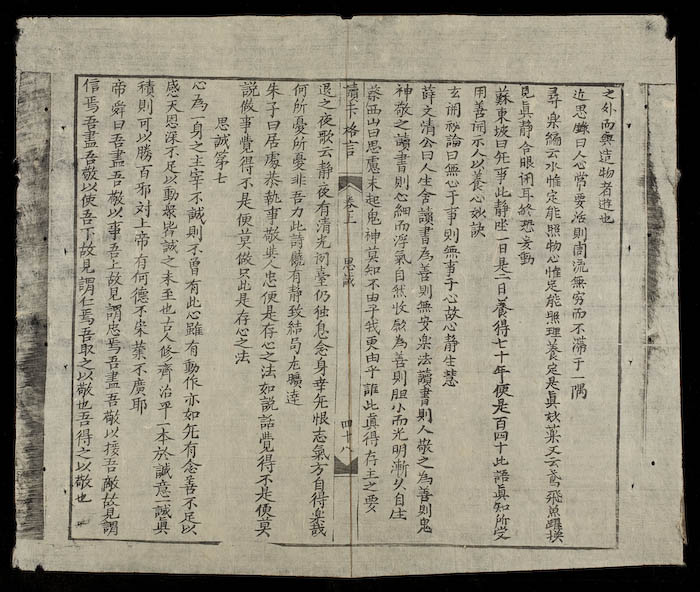 之外而與造物者遊也
近思錄曰人心常要活則周流無穷而不滯于一隅
尋樂編云水惟定能照物心惟定能照理養定是眞妙藥又云鳶飛魚躍按
見眞静合眼闭耳終恐妄動
蘇東坡曰无事此静坐一日是二日養得七十年便是百四十此語眞知所受
用善開示人以養心妙訣
玄関秘論曰無心于事則無事于心故心静生慧
薛文清公曰人生舍讀書為善則無安樂法讀書則人敬之為善則鬼
神敬之讀書則心細而浮氣自然收歛為善則胆小而光明漸久自生
蔡西山曰思慮未起鬼神莫知不由乎我更由乎誰此眞得存主之要
讀书格言
卷上
思誠
四十八
退之夜歌云静夜有清光闲臺仍独息念身幸无恨志氣方自得樂哉
何所憂所憂非吾力此詩饒有静致結局尤曠達
朱子曰居處恭執事敬與人忠便是存心之法如説話覺得不是便莫
説做事覺得不是便莫做只此是存心之法
思誠第七
心為一身之主宰不誠則不曾有此心雖有動作亦如无有念善不足以
感天恩深不足以動衆皆誠之未至也古人修齊治平一本於誠意一誠眞
積則可以勝百邪对上帝有何德不崇業不廣耶
帝舜曰吾盡吾敬以事吾上故見謂忠焉吾盡吾敬以接吾敵故見謂
信焉吾盡吾敬以使吾下故見謂仁焉吾取之以敬也吾得之以敬也